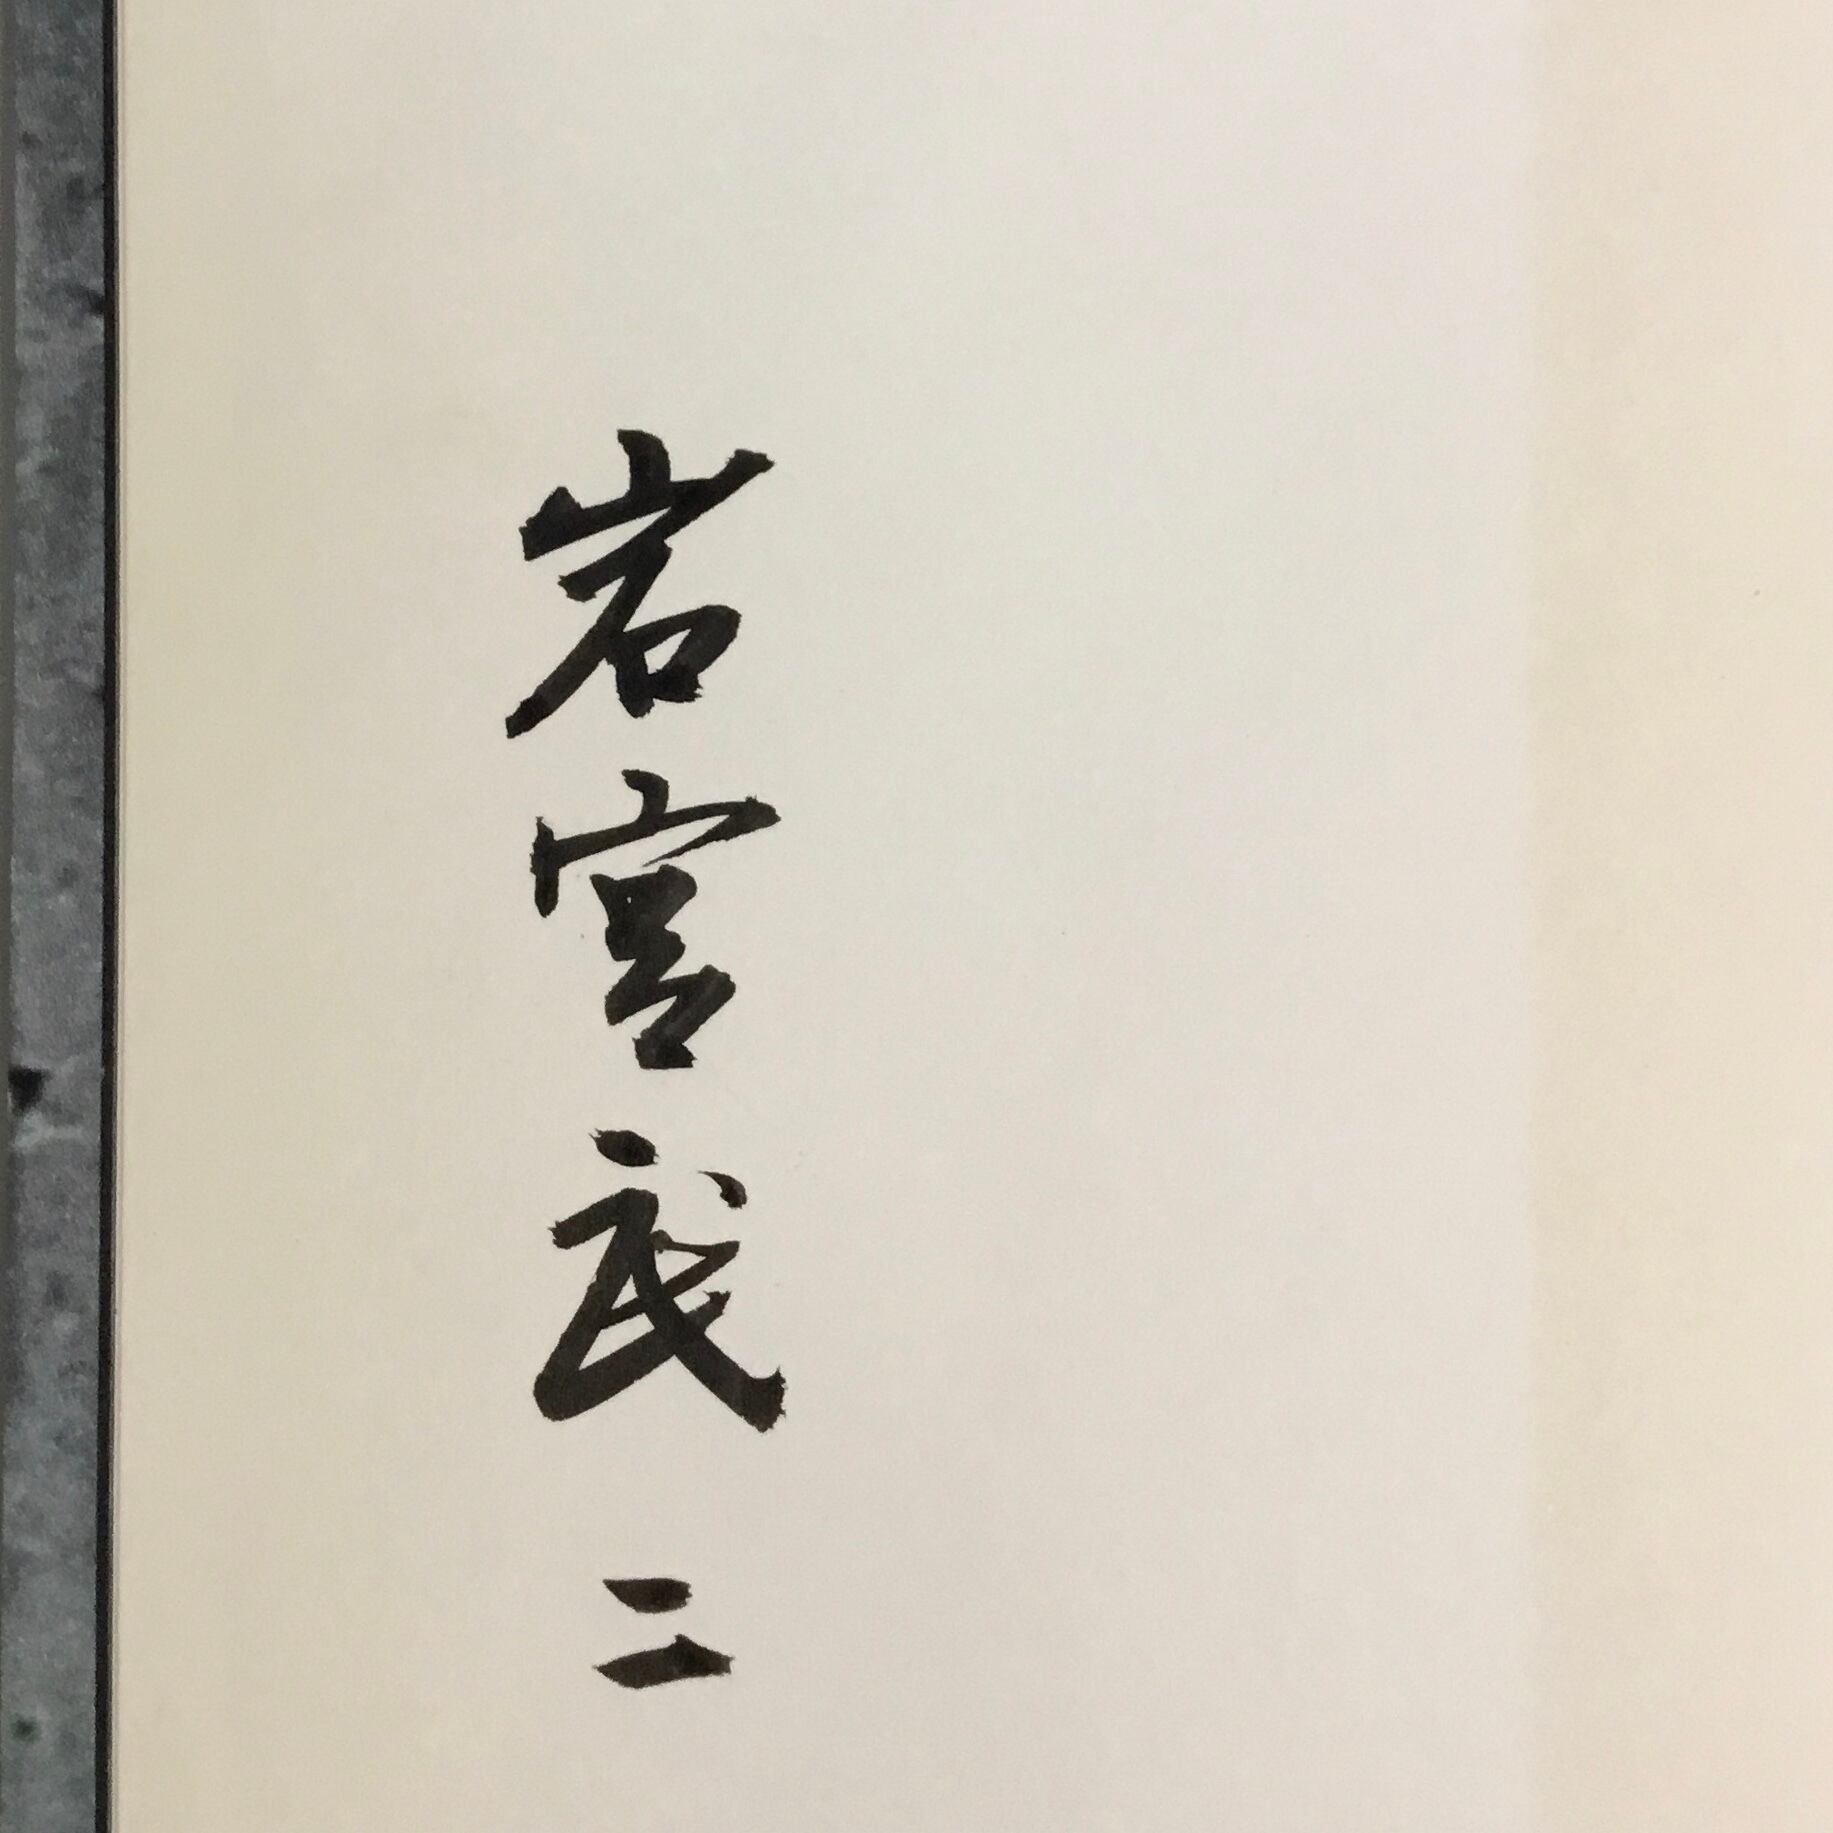 岩宮武二